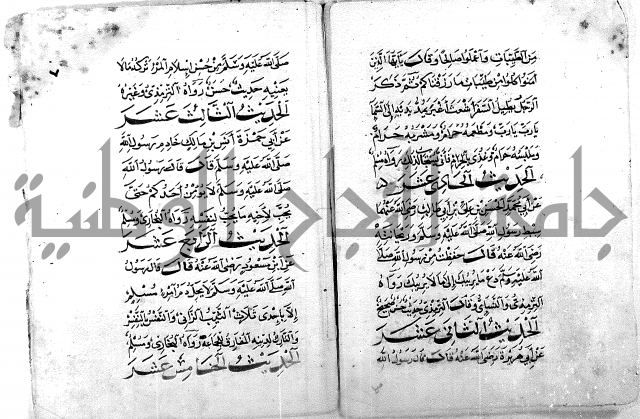 من الطيبات واعملوا صالحا وقال يا ايها الذين
آمنوا كلوا من طيبات ما رزقناكم ثم ذكر
الرجل يطيل السفر اشعث اغبر يمد يديه الى السما
يا رب يا رب ومطعمه حرام ومشربه حرام
وملبسه حرام وغذي بالحرام فانى يستجاب لذلك رواه مسلم
الحديث الحادي عشر
عن ابي محمد الحسن بن علي بن ابي طالب رضي الله عنهما
سبط رسول الله صلى الله عليه وسلم وريحانته
رضي الله عنه قال حفظت من رسول الله صلى
الله عليه وسلم دع ما يريبك الى ما لا يريبك رواه
الترمذي والنسائي وقال الترمذي حديث صحيح
الحديث الثاني عشر
عن ابي هريرة رضي الله عنه قال قال رسول الله
صلى الله عليه وسلم من حسن اسلام المرء تركه ما لا
يعنيه حديث حسن رواه الترمذي وغيره
الحديث الثالث عشر
عن ابي حمزة انس بن مالك خادم رسول الله
صلى الله عليه وسلم قال قال رسول الله
صلى الله عليه وسلم لا يؤمن احدكم حتى
يحب لاخيه ما يحب لنفسه رواه البخاري ومسلم
الحديث الرابع عشر
عن ابن مسعود رضي الله عنه قال قال رسول
الله صلى الله عليه وسلم لا يحل دم امرء مسلم
الا باحدى ثلاث الثيب الزاني والنفس بالنفس
والتارك لدينه المفارق للجماعة رواه البخاري ومسلم
الحديث الخامس عشر
جامعة الوطنية